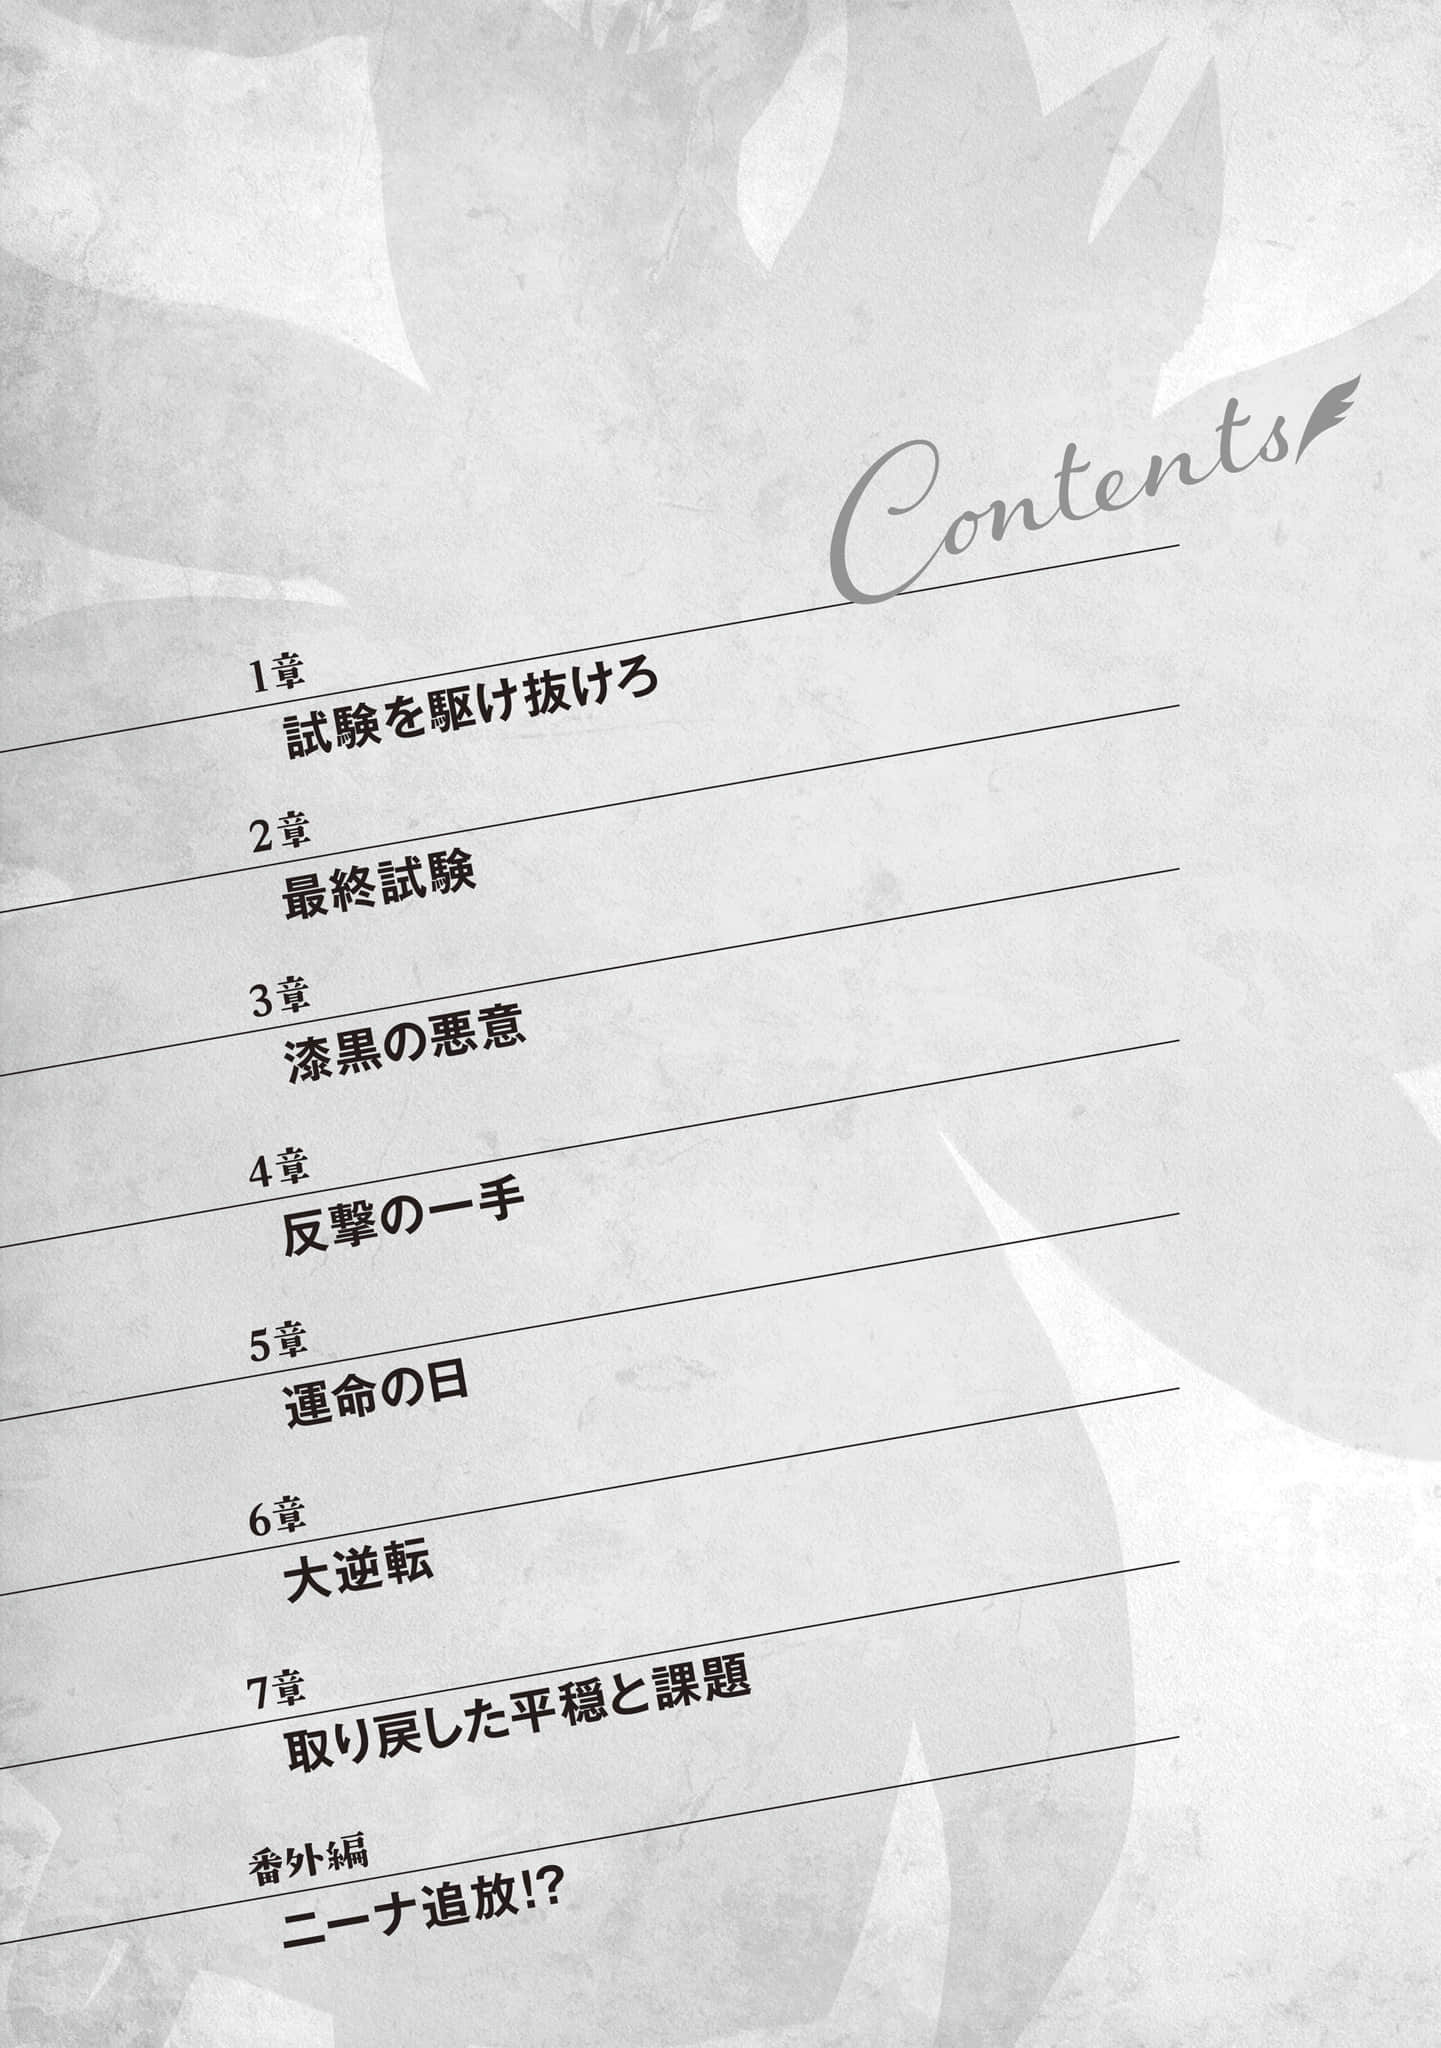 Contents
1章
試験を駆け抜けろ
2章
最終試験
3章
漆黒の悪意
4章
反撃の一手
5章
運命の日
6章
大逆転
7章
取り戻した平穏と課題
番外編
ニーナ追放!?